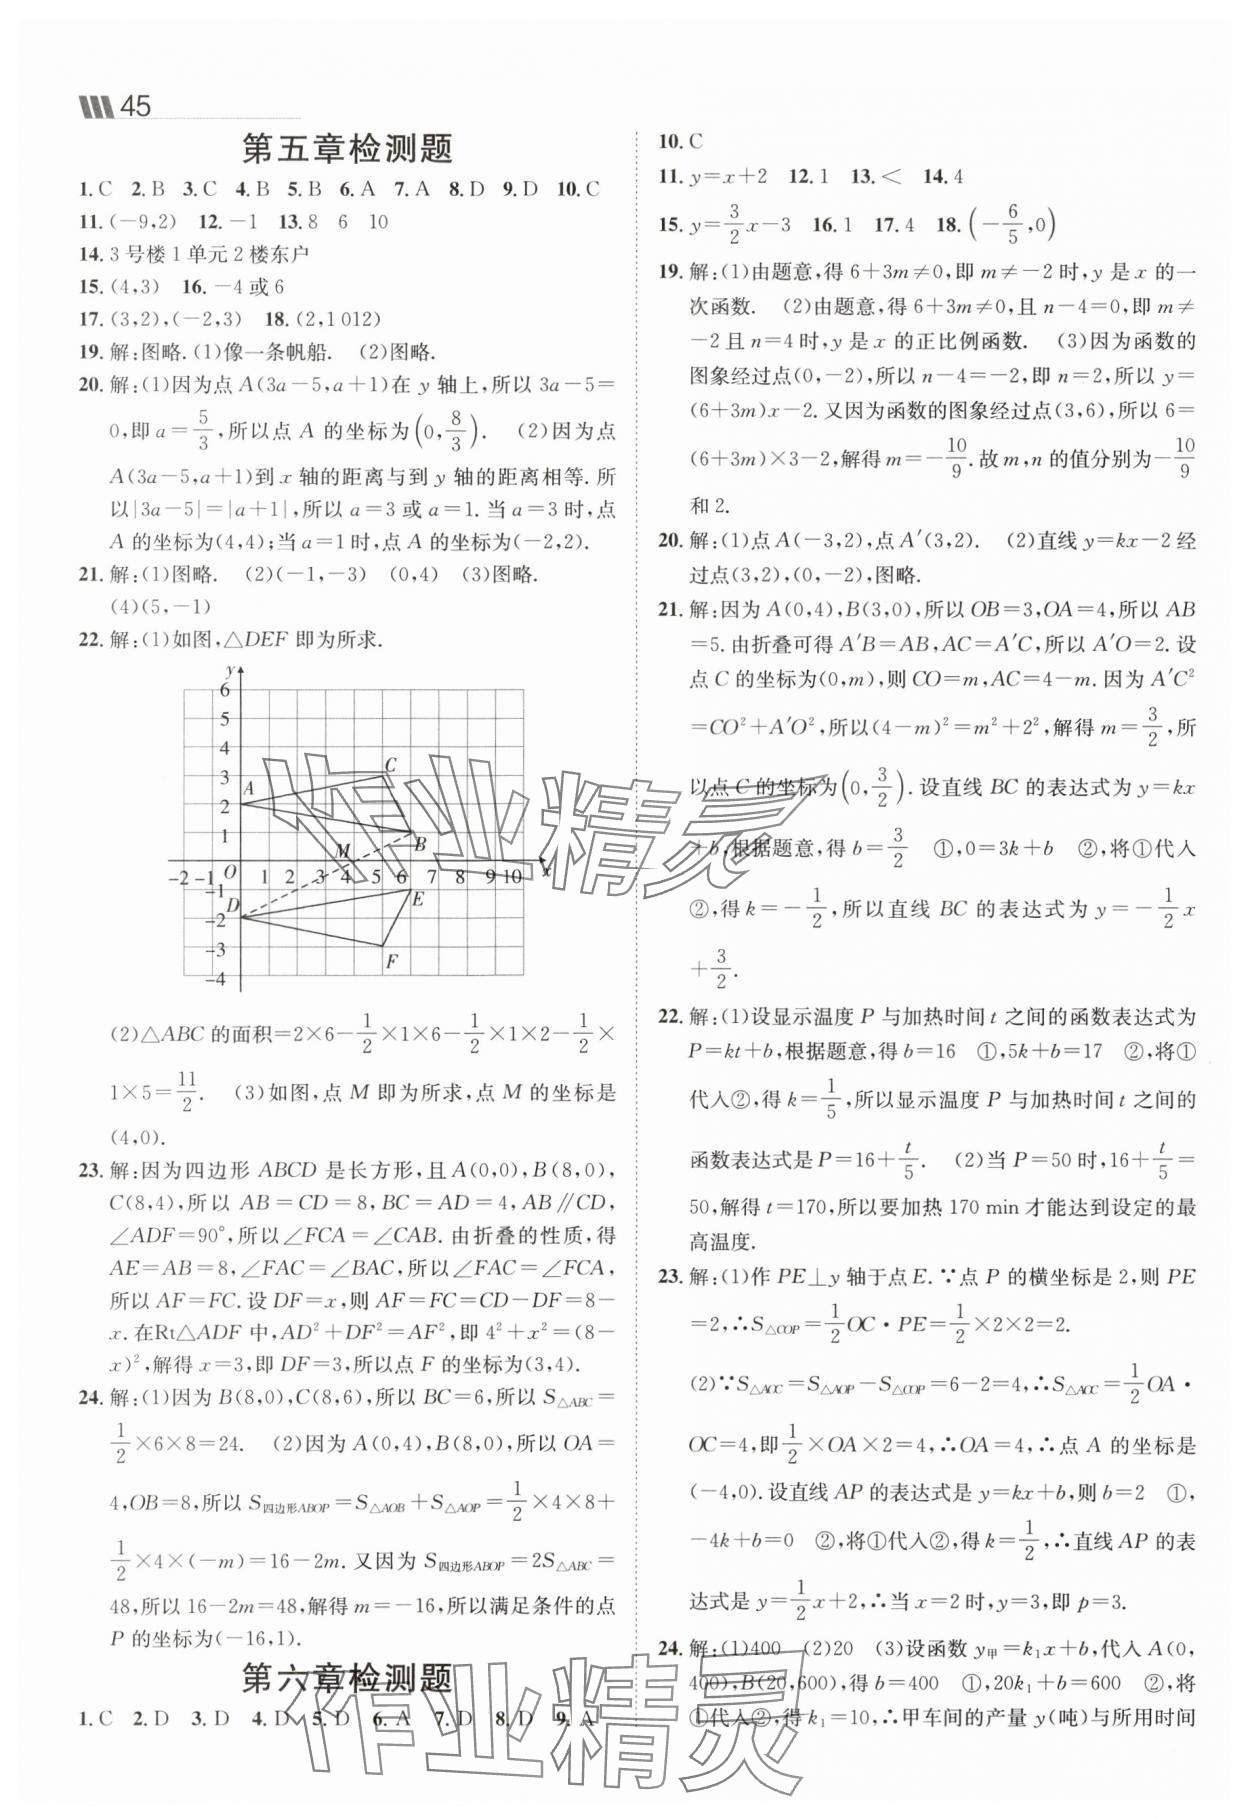 45
第五章检测题
1. C 2. B 3. C 4. B 5. B 6. A 7. A 8. D 9. D 10. C
11. (-9,2) 12. -1 13. 8 6 10
14. 3号楼1单元2楼东户
15. (4,3) 16. -4或6
17. (3,2),(-2,3) 18. (2,1 012)
19. 解:图略.(1)像一条帆船. (2)图略.
20. 解:(1)因为点A(3a-5,a+1)在y轴上,所以3a-5=
0,即a=5/3,所以点A的坐标为(0,8/3). (2)因为点
A(3a-5,a+1)到x轴的距离与到y轴的距离相等.所
以|3a-5|=|a+1|,所以a=3或a=1.当a=3时,点
A的坐标为(4,4);当a=1时,点A的坐标为(-2,2).
21. 解:(1)图略. (2)(-1,-3) (0,4) (3)图略.
(4)(5,-1)
22. 解:(1)如图,△DEF即为所求.
y
6
5
4
3 C
A
2
1 B
M
O
-2 -1 1 2 3 4 5 6 7 8 9 10 x
-1 E
D
-2
-3 F
-4
(2)△ABC的面积=2×6-1/2×1×6-1/2×1×2-1/2×
1×5=11/2. (3)如图,点M即为所求,点M的坐标是
(4,0).
23. 解:因为四边形ABCD是长方形,且A(0,0),B(8,0),
C(8,4),所以AB=CD=8,BC=AD=4,AB∥CD,
∠ADF=90°,所以∠FCA=∠CAB.由折叠的性质,得
AE=AB=8,∠FAC=∠BAC,所以∠FAC=∠FCA,
所以AF=FC.设DF=x,则AF=FC=CD-DF=8-
x.在Rt△ADF中,AD²+DF²=AF²,即4²+x²=(8-
x)²,解得x=3,即DF=3,所以点F的坐标为(3,4).
24. 解:(1)因为B(8,0),C(8,6),所以BC=6,所以S△ABC=
1/2×6×8=24. (2)因为A(0,4),B(8,0),所以OA=
4,OB=8,所以S四边形ABOP=S△AOB+S△AOP=1/2×4×8+
1/2×4×(-m)=16-2m.又因为S四边形ABOP=2S△ABC=
48,所以16-2m=48,解得m=-16,所以满足条件的点
P的坐标为(-16,1).
第六章检测题
1. C 2. D 3. D 4. D 5. D 6. A 7. D 8. D 9. A
10. C
11. y=x+2 12. 1 13. < 14. 4
15. y=3/2x-3 16. 1 17. 4 18. (-6/5,0)
19. 解:(1)由题意,得6+3m≠0,即m≠-2时,y是x的一
次函数. (2)由题意,得6+3m≠0,且n-4=0,即m≠
-2且n=4时,y是x的正比例函数. (3)因为函数的
图象经过点(0,-2),所以n-4=-2,即n=2,所以y=
(6+3m)x-2.又因为函数的图象经过点(3,6),所以6=
(6+3m)×3-2,解得m=-10/9.故m,n的值分别为-10/9
和2.
20. 解:(1)点A(-3,2),点A′(3,2). (2)直线y=kx-2经
过点(3,2),(0,-2),图略.
21. 解:因为A(0,4),B(3,0),所以OB=3,OA=4,所以AB
=5.由折叠可得A′B=AB,AC=A′C,所以A′O=2.设
点C的坐标为(0,m),则CO=m,AC=4-m.因为A′C²
=CO²+A′O²,所以(4-m)²=m²+2²,解得m=3/2,所
以点C的坐标为(0,3/2).设直线BC的表达式为y=kx
+b,根据题意,得b=3/2 ①,0=3k+b ②,将①代入
②,得k=-1/2,所以直线BC的表达式为y=-1/2x
+3/2.
22. 解:(1)设显示温度P与加热时间t之间的函数表达式为
P=kt+b,根据题意,得b=16 ①,5k+b=17 ②,将①
代入②,得k=1/5,所以显示温度P与加热时间t之间的
函数表达式是P=16+t/5. (2)当P=50时,16+t/5=
50,解得t=170,所以要加热170 min才能达到设定的最
高温度.
23. 解:(1)作PE⊥y轴于点E.∵点P的横坐标是2,则PE
=2,∴S△COP=1/2OC·PE=1/2×2×2=2.
(2)∵S△AOC=S△AOP-S△COP=6-2=4,∴S△AOC=1/2OA·
OC=4,即1/2×OA×2=4,∴OA=4,∴点A的坐标是
(-4,0).设直线AP的表达式是y=kx+b,则b=2 ①,
-4k+b=0 ②,将①代入②,得k=1/2,∴直线AP的表
达式是y=1/2x+2,∴当x=2时,y=3,即p=3.
24. 解:(1)400 (2)20 (3)设函数y甲=k₁x+b,代入A(0,
400),B(20,600),得b=400 ①,20k₁+b=600 ②,将
①代入②,得k₁=10,∴甲车间的产量y(吨)与所用时间
作业精灵
作业精灵